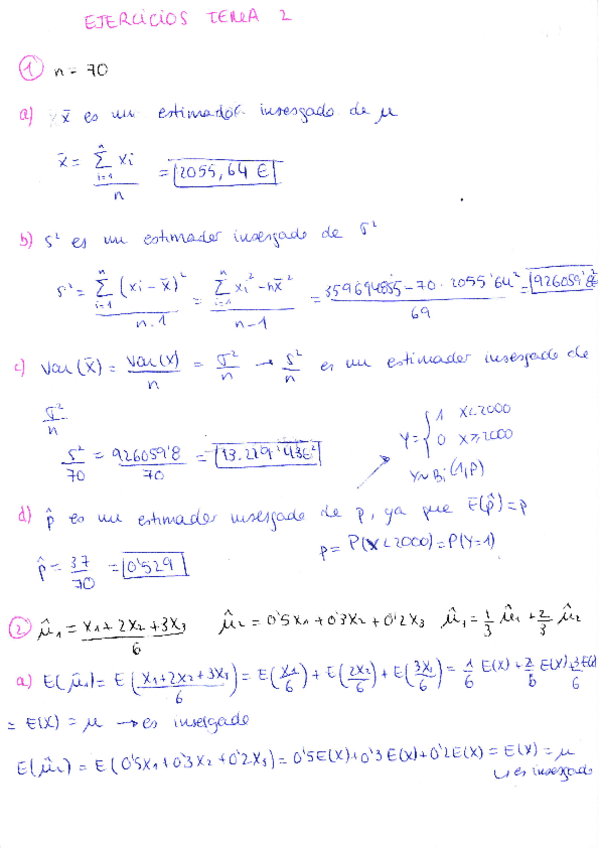 EJERCICIOS TEMA 2
① n = 70
a) x̄ es un estimador insesgado de μ
x̄ = Σ_{i=1}^{n} xi / n = 2055,64 €
b) s² es un estimador insesgado de σ²
s² = Σ_{i=1}^{n} (xi - x̄)² / n-1 = Σ_{i=1}^{n} xi² - nx̄² / n-1 = 359694855 - 70 · 2055'64² / 69 = 926059'8
c) Var(x̄) = Var(x) / n = σ² / n → s² / n es un estimador insesgado de
σ² / n
s² / 70 = 926059'8 / 70 = 13.229'43€²
Y = { 1 X<2000
0 X≥2000
Y~Bi(1,P)
d) p̂ es un estimador insesgado de p, ya que E(p̂) = p
p̂ = 37 / 70 = 0'529
p = P(X<2000) = P(Y=1)
② μ̂₁ = x₁ + 2x₂ + 3x₃ / 6 μ̂₂ = 0'5x₁ + 0'3x₂ + 0'2x₃ μ̂₁ = 1/3 μ̂₁ + 2/3 μ̂₂
a) E(μ̂₁) = E(x₁ + 2x₂ + 3x₃ / 6) = E(x₁/6) + E(2x₂/6) + E(3x₃/6) = 1/6 E(x) + 2/6 E(x) + 3/6 E(x)
= E(x) = μ → es insesgado
E(μ̂₂) = E(0'5x₁ + 0'3x₂ + 0'2x₃) = 0'5E(x) + 0'3E(x) + 0'2E(x) = E(x) = μ
↳ es insesgado